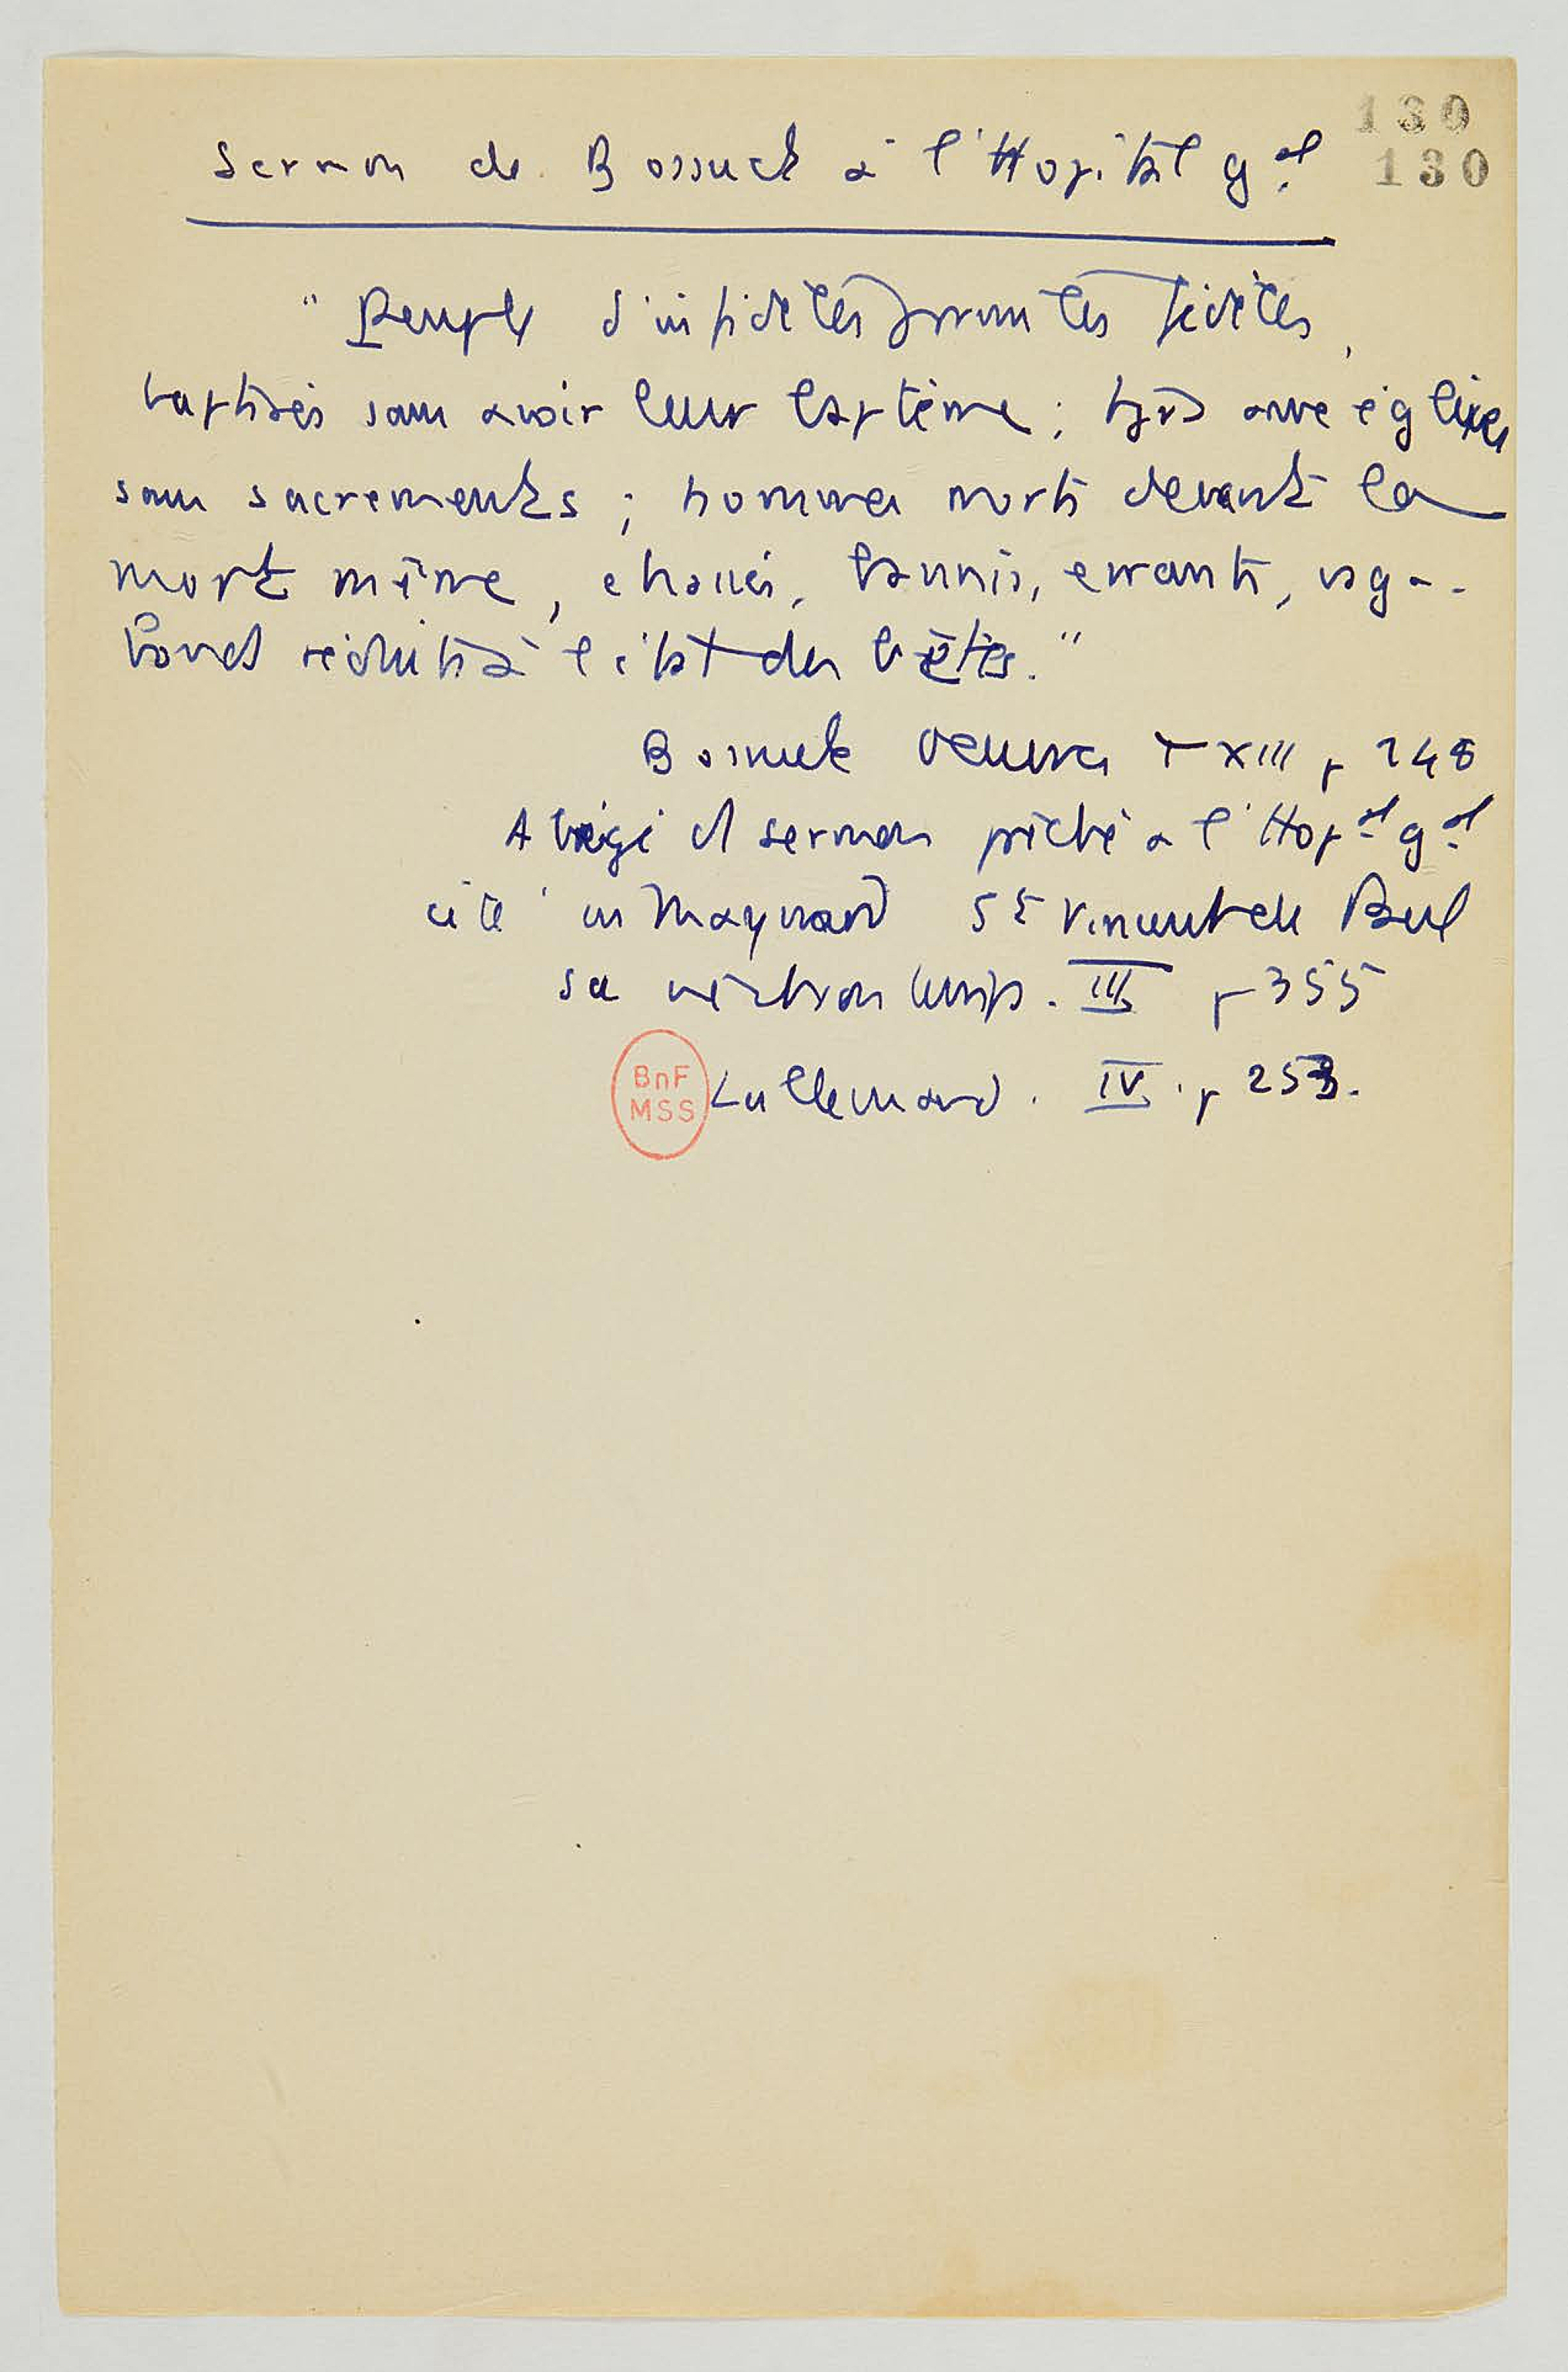 130
130
Sermon de Bossuet à l'Hopital gal
"Peuple d'infidèles parmi les fidèles,
baptisés sans avoir leur baptême ; tjrs aux églises
sans sacrements ; hommes morts devant la
mort même, chassés, bannis, errants, vaga-
bonds réduits à l'état des bêtes."
Bossuet Oeuvres T XIII p 248
Abrégé d sermon prêché à l'Hopal gal
cité in Maynard St Vincent de Paul
sa III p 355
BnF
MSS
Lallemand. IV. p 253.